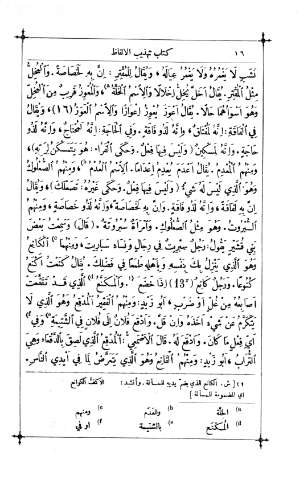 ١٦ كتاب تهذيب الالفاظ
نَشَبٍ لَا يَغْمُرُهُ وَلَا يَغْمُرُ عِيَالَهُ وَيُقَالُ لِلْمُقْتِرِ: إِنَّ بِهِ لَخَصَاصَةً. وَالْمُخِلُّ
مِثْلُ الْمُقْتِرِ. يُقَالُ أَخَلَّ يُخِلُّ إِخْلَالًا وَالِاسْمُ الْخَلَّةُ (a) وَالْمُعْوِزُ قَرِيبٌ مِنَ الْمُخِلِّ
وَهُوَ أَسْوَأُهُمَا حَالًا. يُقَالُ أَعْوَزَ يُعْوِزُ إِعْوَازًا وَالِاسْمُ الْعَوَزُ (١٦). وَيُقَالُ
فِي الْفَاقَةِ: إِنَّهُ لَمُفْتَاقٌ. وَإِنَّهُ لَذُو فَاقَةٍ. وَفِي الْحَاجَةِ: إِنَّهُ لَمُحْتَاجٌ. وَإِنَّهُ لَذُو
حَاجَةٍ. وَإِنَّهُ لَمِسْكِينٌ (وَلَيْسَ فِيهَا فِعْلٌ. وَحَكَى الْفَرَّاءُ: هُوَ يَتَمَسْكَنُ لِرَبِّهِ).
وَمِنْهُمُ الْمُعْدِمُ. يُقَالُ أَعْدَمَ يُعْدِمُ إِعْدَامًا. وَالِاسْمُ الْعُدْمُ (b). وَمِنْهُمُ الصُّعْلُوكُ
وَهُوَ الَّذِي لَيْسَ لَهُ شَيْءٌ (وَلَيْسَ فِيهَا فِعْلٌ. وَحَكَى غَيْرُهُ: تَصَعْلَكَ) وَيُقَالُ:
إِنَّ بِهِ لَفَاقَةً. وَإِنَّهُ لَذُو فَاقَةٍ. وَإِنَّ بِهِ لَخَصَاصَةً. وَإِنَّهُ لَذُو خَصَاصَةٍ. وَمِنْهُمُ
السُّبْرُوتُ. وَهُوَ مِثْلُ الصُّعْلُوكِ. وَامْرَأَةٌ سُبْرُوتَةٌ. (قَالَ) وَسَمِعْتُ بَعْضَ
بَنِي قُشَيْرٍ يَقُولُ: رَجُلٌ سِبْرِيتٌ فِي رِجَالٍ وَنِسَاءٍ سَبَارِيتَ. وَمِنْهُمُ (c) الْكَانِعُ
وَهُوَ الَّذِي يَنْزِلُ بِكَ بِنَفْسِهِ وَبِأَهْلِهِ طَمَعًا فِي فَضْلِكَ. يُقَالُ كَنَعْتَ تَكْنَعُ
كُنُوعًا. وَرَجُلٌ كَانِعٌ (13) (إِذَا خَضَعَ. وَالْمُكَنَّعُ (d) الَّذِي قَدْ تَقَفَّعَتْ
أَصَابِعُهُ مِنْ غُلٍّ أَوْ ضَرْبٍ. أَبُو زَيْدٍ: وَمِنْهُمُ الْفَقِيرُ الْمُدْقِعُ وَهُوَ الَّذِي لَا
يَتَكَرَّمُ عَنْ شَيْءٍ أَخَذَهُ وَإِنْ قَلَّ. وَأَدْقَعَ فُلَانٌ إِلَى فُلَانٍ فِي الشَّتِيمَةِ (e) وَفِي (f)
أَيِّ فِعْلٍ مَا كَانَ. وَأَدْقَعَ لَهُ. قَالَ الْأَصْمَعِيُّ: الْمُدْقِعُ الَّذِي لَصِقَ بِالدَّقْعَاءِ وَهِيَ
التُّرَابُ. أَبُو زَيْدٍ: وَمِنْهُمُ الْقَانِعُ وَهُوَ الَّذِي يَتَعَرَّضُ لِمَا فِي أَيْدِي النَّاسِ.
(١ [ش. الكانع الذي يضمّ يديه للمسألة. وأنشد: والاكفّ الكوانع
اي المضمومة للمسألة]
(a الخلة (b والعَدَم (c ومنهم
(d المكتنع (e بالشتيمة (f او في